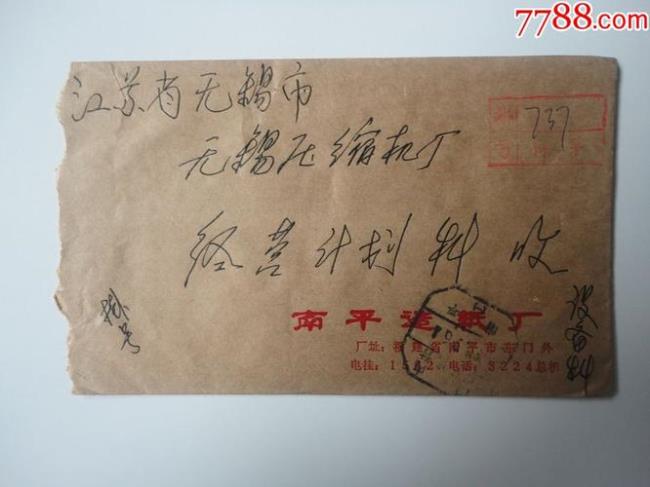 7788.com
江苏省无锡市
737
无锡压缩机厂
经营计划科 收
挂号
南平造纸厂
设备科
厂址：福建省南平市东门外
电挂：1562 电话：3224总机